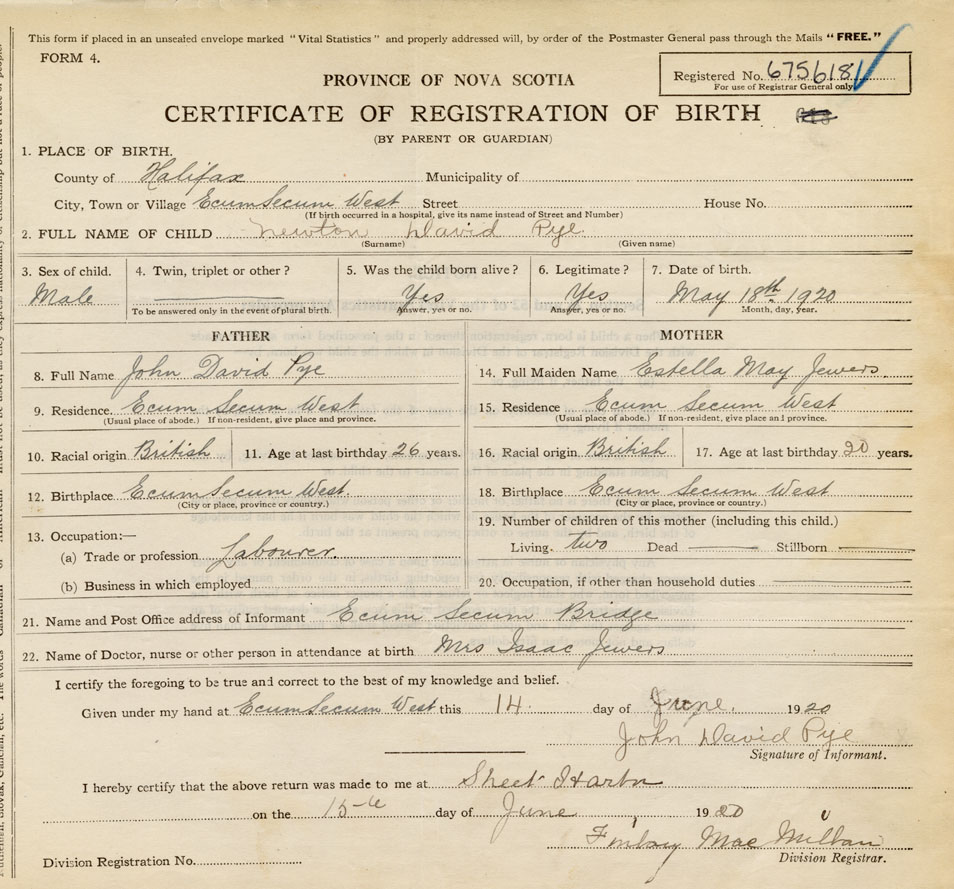 This form if placed in an unsealed envelope marked "Vital Statistics" and properly addressed will, by order of the Postmaster General pass through the Mails "FREE."
FORM 4.
Registered No. 675618
For use of Registrar General only
PROVINCE OF NOVA SCOTIA
CERTIFICATE OF REGISTRATION OF BIRTH
(BY PARENT OR GUARDIAN)
1. PLACE OF BIRTH.
County of Halifax Municipality of
City, Town or Village Ecum Secum West Street House No.
(If birth occurred in a hospital, give its name instead of Street and Number)
2. FULL NAME OF CHILD Newton David Pye
(Surname) (Given name)
3. Sex of child. 4. Twin, triplet or other? 5. Was the child born alive? 6. Legitimate? 7. Date of birth.
Male Yes Yes May 18th 1920
To be answered only in the event of plural birth. Answer, yes or no. Answer, yes or no. Month, day, year.
FATHER MOTHER
8. Full Name John David Pye 14. Full Maiden Name Estella May Jewers
9. Residence. Ecum Secum West 15. Residence Ecum Secum West
(Usual place of abode.) If non-resident, give place and province. (Usual place of abode.) If non-resident, give place and province.
10. Racial origin British 11. Age at last birthday 26 years. 16. Racial origin British 17. Age at last birthday 20 years.
12. Birthplace Ecum Secum West. 18. Birthplace Ecum Secum West
(City or place, province or country.) (City or place, province or country.)
13. Occupation:— 19. Number of children of this mother (including this child.)
(a) Trade or profession Labourer. Living. two Dead Stillborn
(b) Business in which employed 20. Occupation, if other than household duties
21. Name and Post Office address of Informant Ecum Secum Bridge
22. Name of Doctor, nurse or other person in attendance at birth Mrs Isaac Jewers
I certify the foregoing to be true and correct to the best of my knowledge and belief.
Given under my hand at Ecum Secum West this 14 day of June. 1920
John David Pye
Signature of Informant.
I hereby certify that the above return was made to me at Sheet Harbor
on the 15th day of June 1920
Finlay MacMillan
Division Registrar.
Division Registration No.